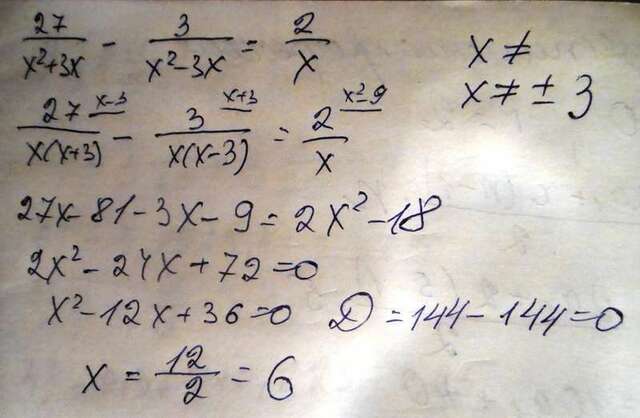 27/(x²+3x) - 3/(x²-3x) = 2/x
x ≠
x ≠ ± 3
27^(x-3)/(x(x+3)) - 3^(x+3)/(x(x-3)) = 2^(x²-9)/x
27x-81-3x-9=2x²-18
2x²-24x+72=0
x²-12x+36=0 D=144-144=0
x = 12/2 = 6